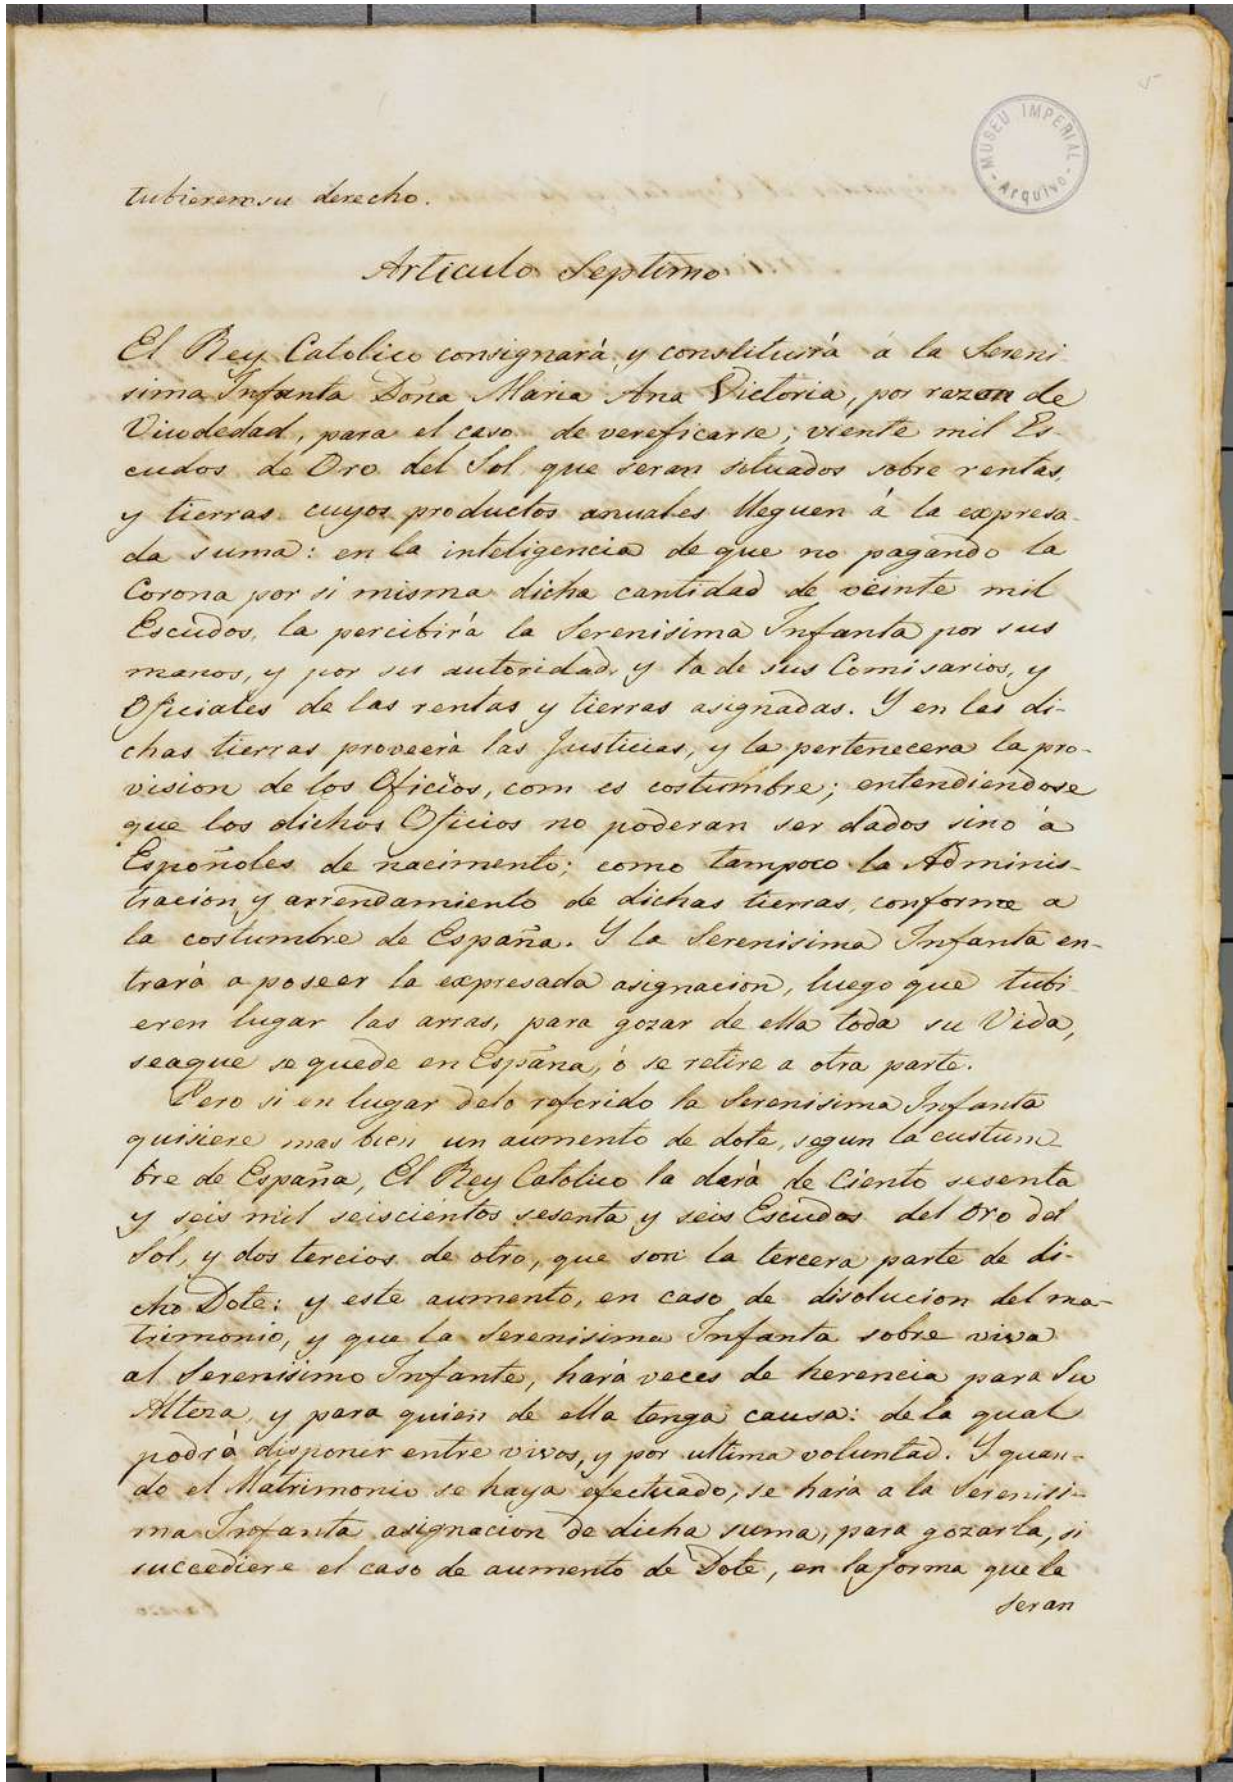 MUSEU IMPERIAL
- Arquivo -
tubierem su derecho.
Articulo Septimo
El Rey Catolico consignará y constituirá á la Sereni
sima Infanta Doña Maria Ana Victoria, por razon de
Viudedad, para el caso de vereficarse; viente mil Es-
cudos de Oro del Sol que seran situados sobre rentas,
y tierras cuyos productos anuales lleguen á la expresa-
da suma: en la inteligencia de que no pagando la
Corona por si misma dicha cantidad de veinte mil
Escudos, la percibirá la Serenisima Infanta por sus
manos, y por su autoridad, y la de sus Comisarios, y
Oficiales de las rentas y tierras asignadas. Y en las di-
chas tierras proveerà las Justicias, y la pertenecera la pro-
vision de los Oficios, com es costumbre; entendiendose
que los dichos Oficios no poderan ser dados sino á
Españoles de nacimento; como tampoco la Adminis-
tracion y arrendamiento de dichas tierras, conforme a
la costumbre de España. Y la Serenisima Infanta en-
trará a poseer la expresada asignacion, luego que tubi
eren lugar las arras, para gozar de ella toda su Vida,
seaque se quede en España, ó se retire a otra parte.
Pero si en lugar delo referido la Serenisima Infanta
quisiere mas bien un aumento de dote, segun la custum
bre de España, El Rey Catolico la dará de Ciento sesenta
y seis mil seiscientos sesenta y seis Escudos del Oro del
Sol, y dos tercios de otro, que son la tercera parte de di-
cho Dote: y este aumento, en caso de disolucion del ma-
trimonio, y que la Serenisima Infanta sobre viva
al Serenisimo Infante, hará veces de herencia para Su
Alteza, y para quien de ella tenga causa: de la qual
podrá disponer entre vivos, y por ultima voluntad. Y quan-
do el Matrimonio se haya efectuado, se hará a la Serenisi-
ma Infanta asignacion de dicha suma, para gozarla, si
succediere el caso de aumento de Dote, en la forma que la
seran